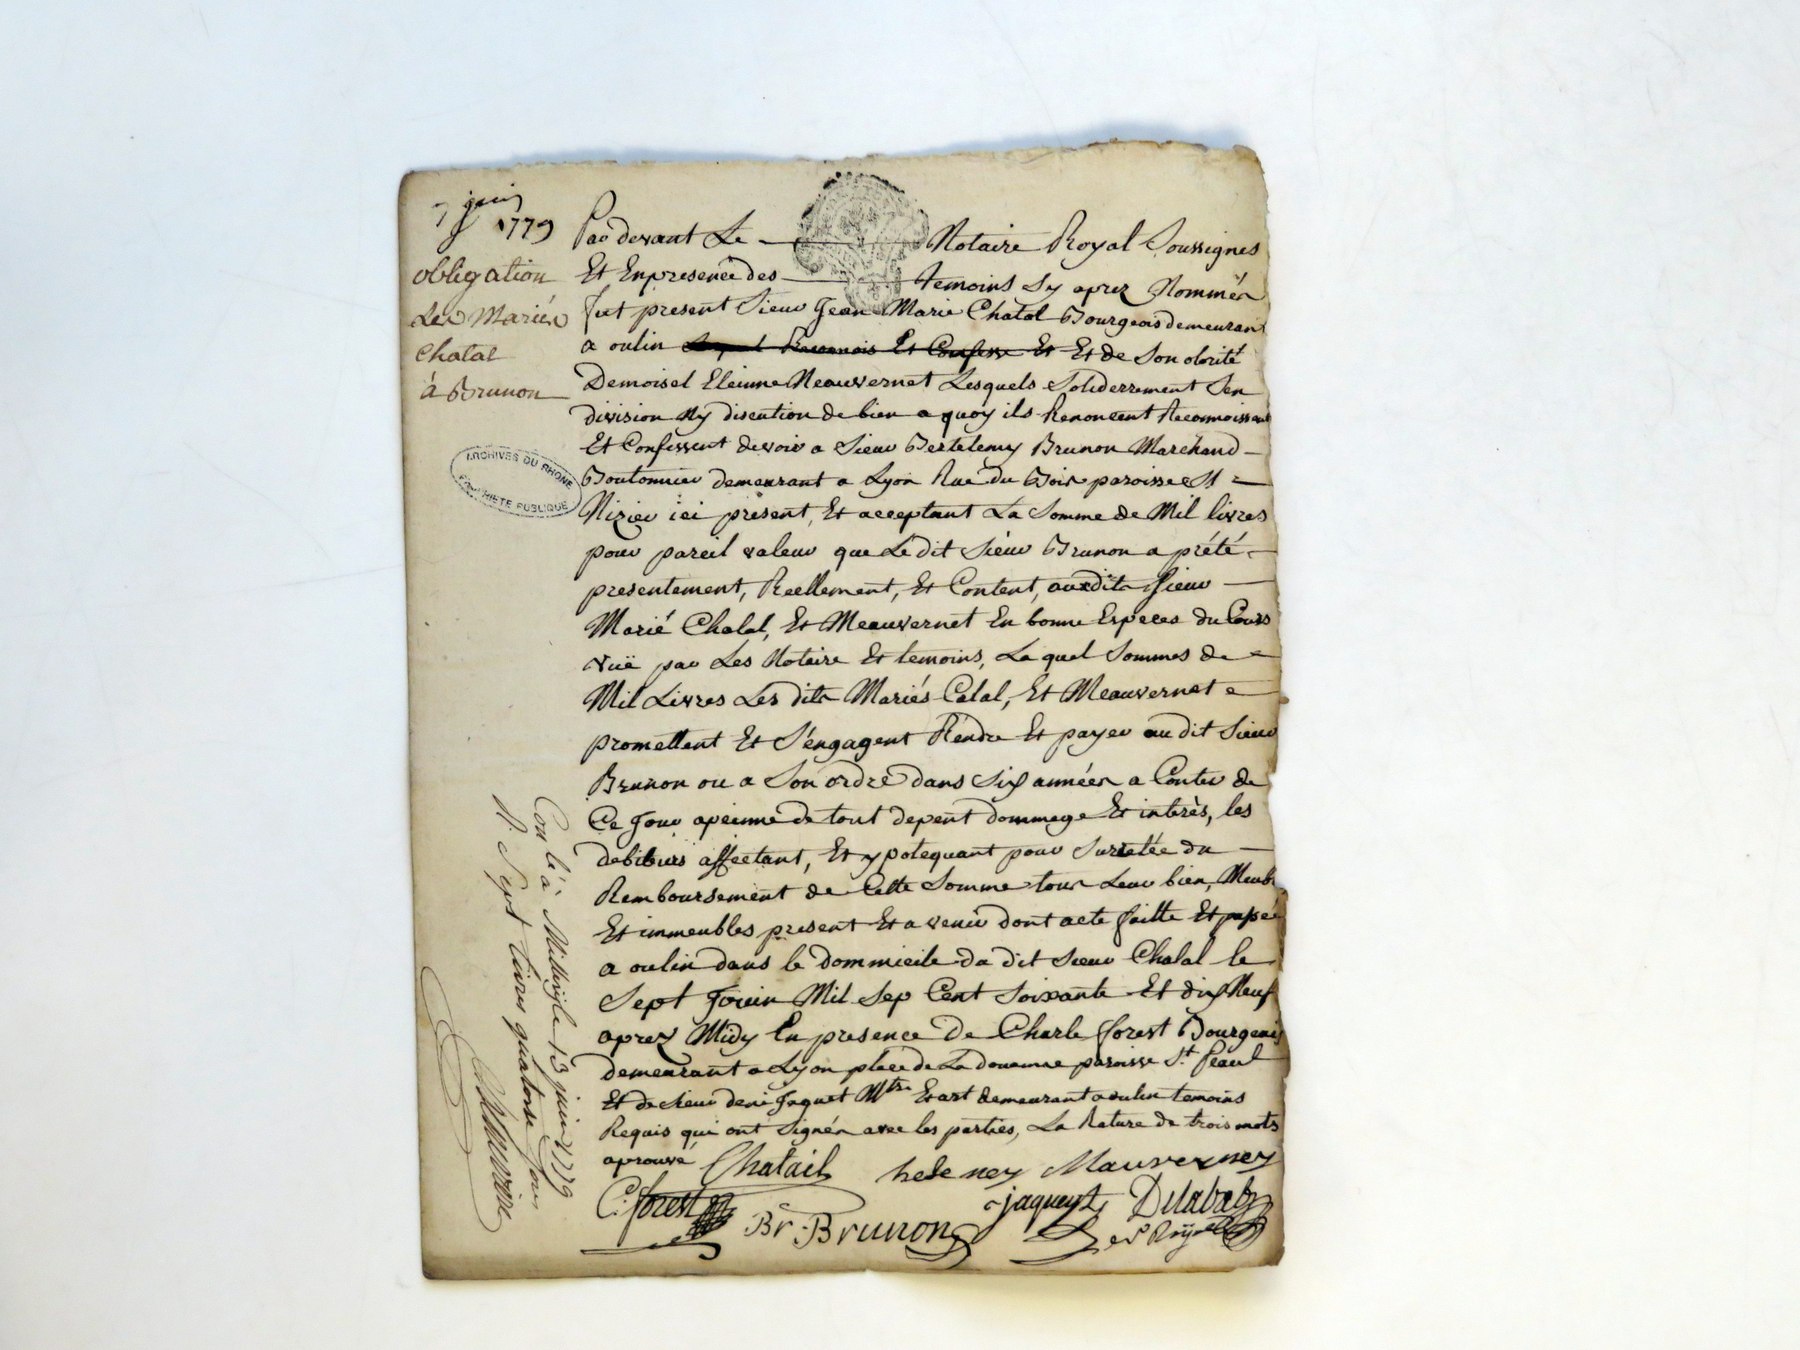 7 juin
1779
obligation
des Mariés
Chatal
à Brunon
Par devant Le Notaire Royal Soussignes
Et Enpresence des temoins Sy aprez Nommér
fut present Sieur Jean Marie Chatal Bourgeois demeurant
a oulin Et de Son otorité
Demoisel Meauvernet Lesquels Soliderrement Sen
division Ny discution de bien a quoy ils Renoncent Reconnoissent
Et Confessent devoir a Sieur Bertelemy Brunon Marchand
Boutonnier demeurant a Lyon Rue du Bois paroisse St
Nizier ici present, Et acceptant La Somme de Mil livres
pour pareil valeur que Le dit Sieur Brunon a prété
presentement, Reellement, Et Content, auxdits Sieur
Marié Chalal, Et Meauvernet En bonne Especes du Cours
vuë par Les Notaire Et temoins, La quel Sommes de
Mil Livres Les dits Mariés Calal, Et Meauvernet
promettent Et S'engagent Rendre Et payer au dit Sieur
Brunon ou a Son ordre dans Six annéer a Conter de
Ce Jour apeinne de tout depent dommage Et interès, les
debiteurs affectant, Et ypotequant pour Suretée du
Remboursement de Cette Somme tour Leur bien, Meubl
Et immeubles present Et a venir dont acte faitte Et passé
a oulin dans le dommicile du dit Sieur Chalal le
Sept Jouin Mil Sep Cent Soixante Et dix Neuf
aprez Midy En presence De Charle forest Bourgeois
demeurant a Lyon place de La douanne paroisse St. Peaul
Et de Sieur deni Jaquet Mtre Et art demeurant a oulin temoins
Requis qui ont Signér avec les parties, La Rature de trois mots
aprouvé
Chatail heleney Mauverney
C. forest jaquet Delabal
Br. Brunon
Con lé à 13 juin 1779
R. Sept livres quatorse
ARCHIVES DU RHONE
PROPRIETE PUBLIQUE